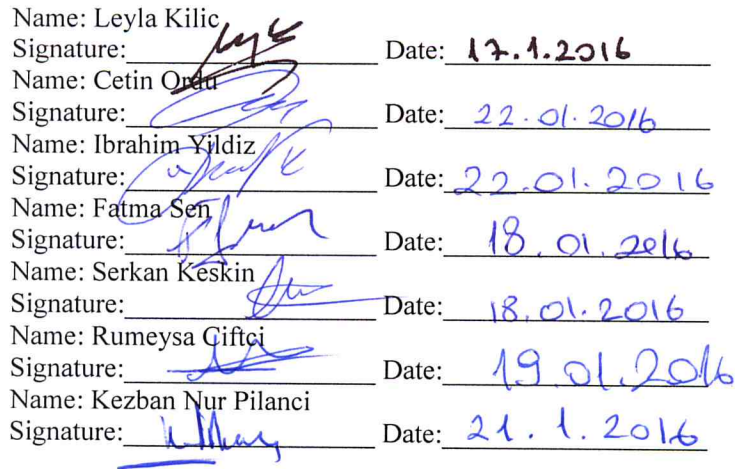 Name: Leyla Kilic
Signature: Date: 17.1.2016
Name: Cetin Ordu
Signature: Date: 22.01.2016
Name: Ibrahim Yildiz
Signature: Date: 22.01.2016
Name: Fatma Sen
Signature: Date: 18.01.2016
Name: Serkan Keskin
Signature: Date: 18.01.2016
Name: Rumeysa Ciftci
Signature: Date: 19.01.2016
Name: Kezban Nur Pilanci
Signature: Date: 21.1.2016